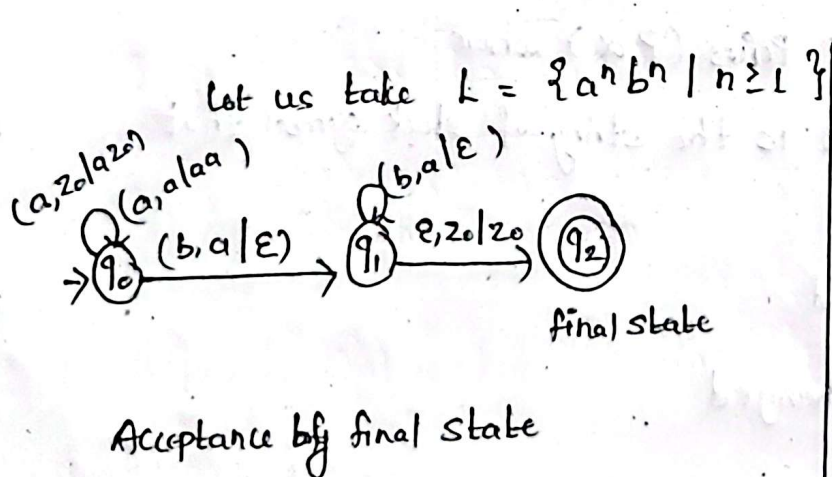 Let us take L = {aⁿbⁿ | n≥1}
(a, z₀/az₀)
(a, a/aa)
(b, a/ε)
(b, a/ε)
ε, z₀/z₀
q₀
q₁
q₂
final state
Acceptance by final state